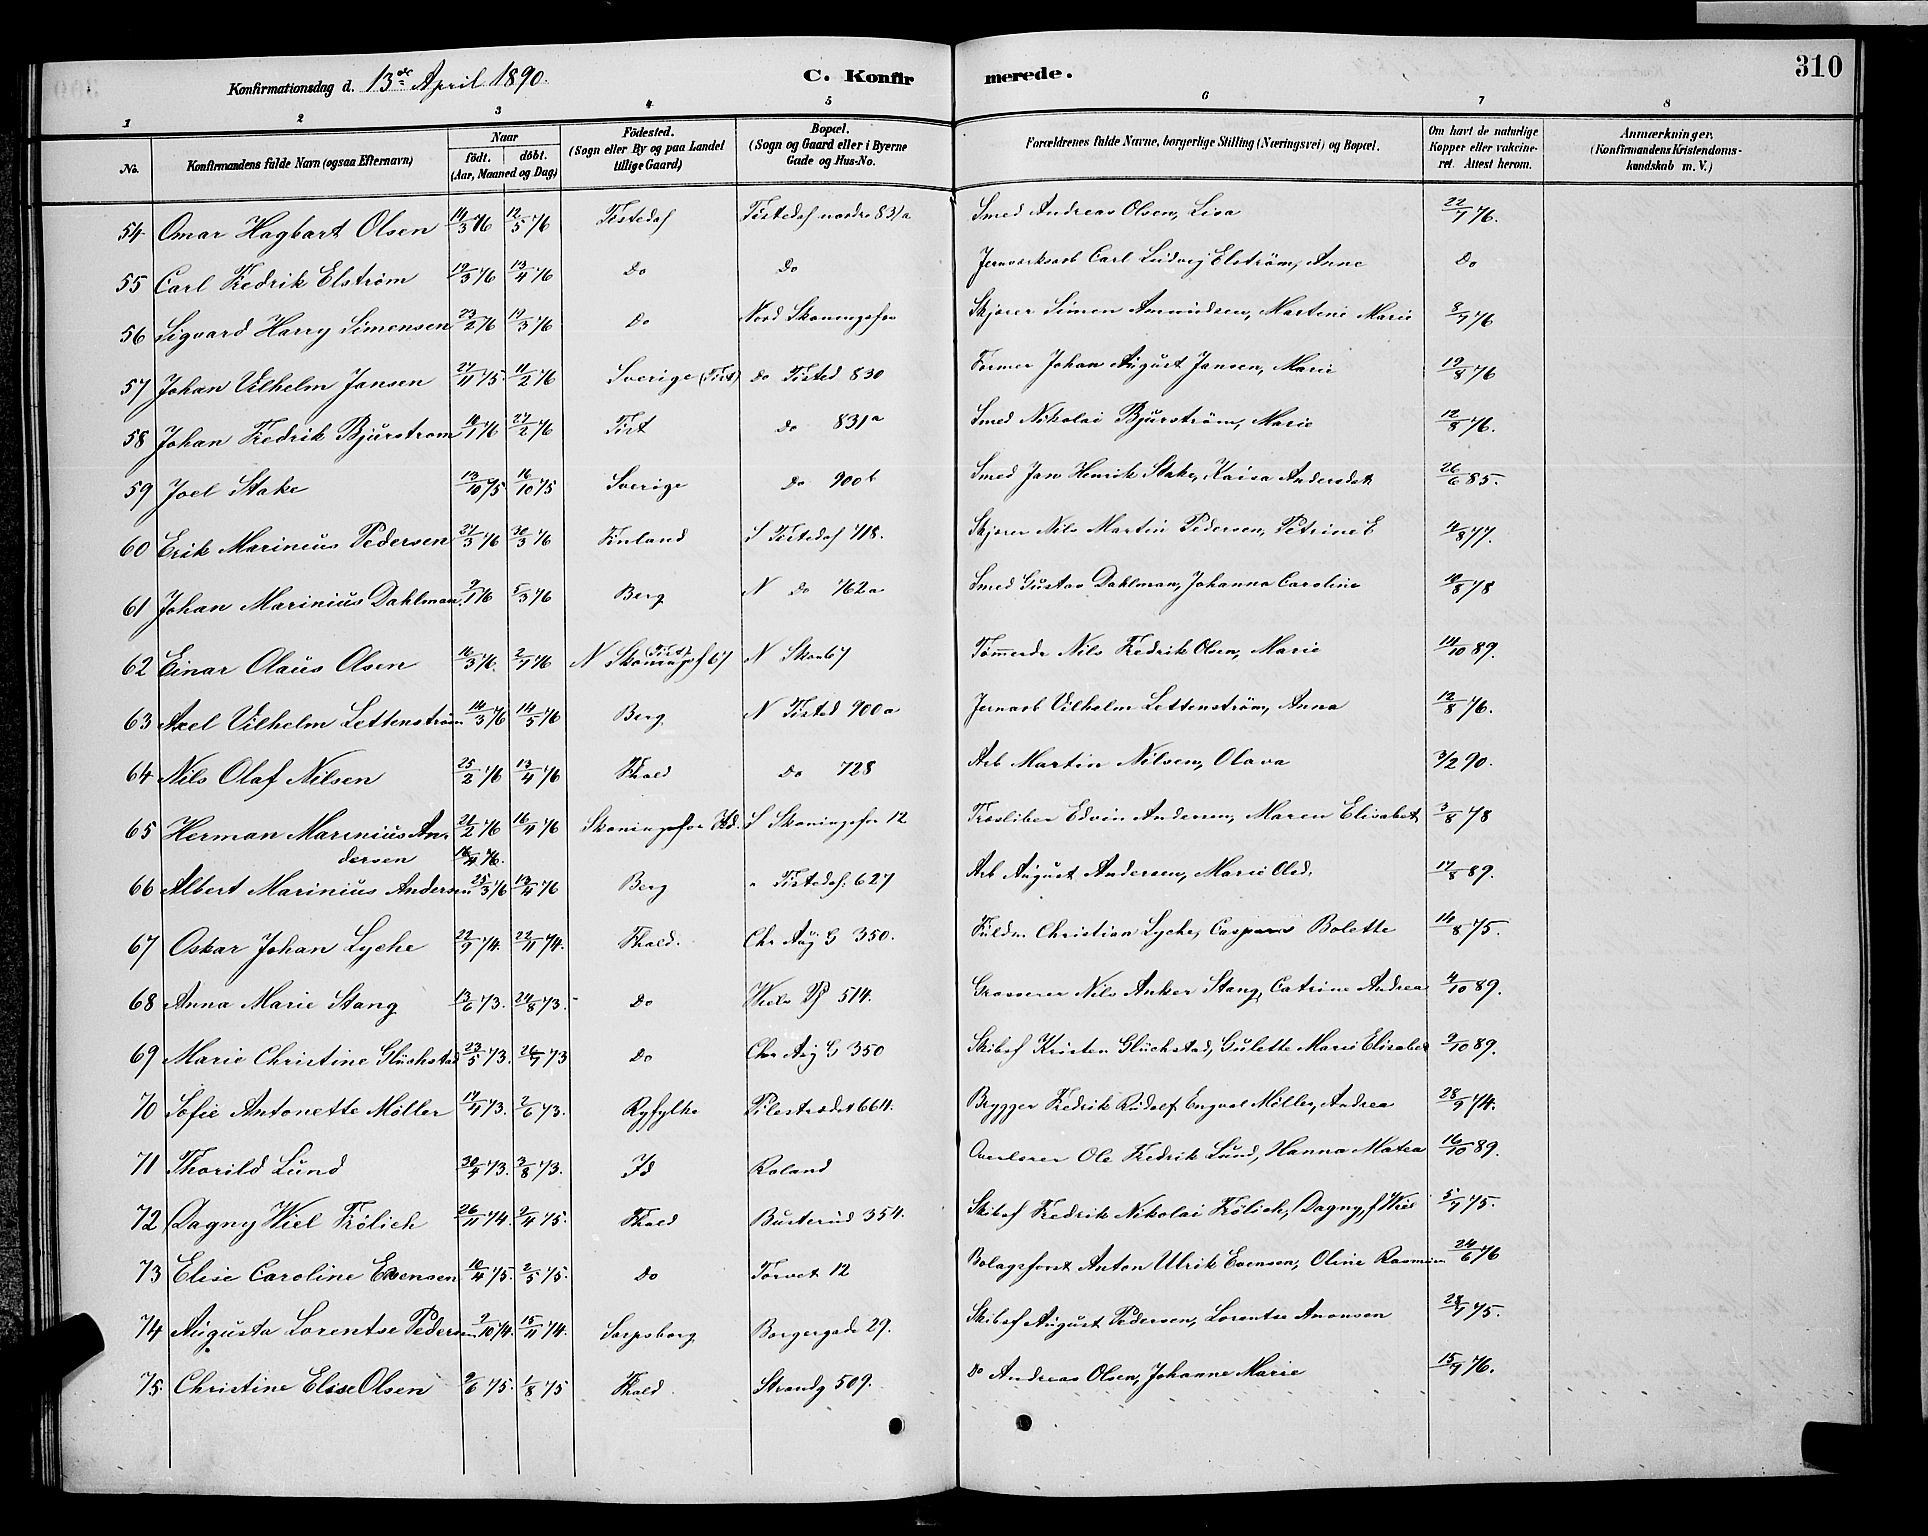 Konfirmationsdag d. 13de April 1890. C. Konfir merede. 310
1 2 3 4 5 6 7 8
No. Konfirmandens fulde Navn (ogsaa Efternavn) Naar födt. döbt. (Aar, Maaned og Dag) Födested. (Sogn eller By og paa Landet tillige Gaard) Bopæl. (Sogn og Gaard eller i Byerne Gade og Hus-No. Forældrenes fulde Navne, borgerlige Stilling (Næringsvei) og Bopæl. Om havt de naturlige Kopper eller vakcineret. Attest herom. Anmærkninger. (Konfirmandens Kristendomskundskab m. V.)
54 Omar Hagbart Olsen 14/3 76 12/5 76 Tistedal Tistedal nordre 831a Smed Andreas Olsen, Lisa 22/7 76.
55 Carl Fredrik Elström 19/3 76 13/4 76 Do Do Jernværksarb Carl Ludvig Elström, Anne Do
56 Sigvard Harry Simensen 23/2 76 19/3 76 Do Nord Skoningsfos Skjörer Simen Amundsen, Martine Marie 8/7 76
57 Johan Vilhelm Jansen 27/11 75 11/2 76 Sverige (Tist) Do Tisted 830 Former Johan August Jansen, Marie 19/8 76
58 Johan Fredrik Bjurstrom 16/1 76 27/2 76 Tist Do 831a Smed Nikolai Bjurström, Marie 12/8 76.
59 Joel Stake 13/10 75 16/10 75 Sverige Do 900b Smed Jan Henrik Stake, Kaisa Andersdat 26/6 85.
60 Erik Marinius Pedersen 27/3 76 30/3 76 Finland S Tistedal 718. Skjörer Nils Martin Pedersen, Petrine E 4/8 77.
61 Johan Marinius Dahlman 9/1 76 5/3 76 Berg N Do 762a Smed Gustav Dahlman, Johanna Caroline 10/8 78
62 Einar Olaus Olsen 16/3 76. 2/7 76 N Skoningsf 67 (Tist) N Skon 67 Tømmerdr Nils Fredrik Olsen, Marie 14/10 89.
63 Axel Vilhelm Lettenström 14/3 76 14/5 76 Berg N Tisted 900a Jernarb Vilhelm Lettenström, Anna 12/8 76.
64 Nils Olaf Nilsen 25/2 76 17/4 76 Fhald Do 728 Arb Martin Nilsen, Olava 3/2 90.
65 Herman Marinius Andersen 21/2 76 16/4 76 Skoningsfos Id. S Skoningsfos 12 Træsliber Edvin Andersen, Maren Elisabet 3/8 78
16/4 76.
66 Albert Marinius Andersen 25/3 76 17/4 76 Berg " Tistedal: 627 Arb August Andersen, Marie Olsd. 17/8 89.
67 Oskar Johan Lyche 22/9 74. 22/11 74. Fhald. Chr Aug G 350. Fuldm Christian Lyche, Caspara Bolette 14/8 75.
68 Anna Marie Stang 13/6 73. 24/8 73. Do Wiels Pl 514. Grosserer Nils Anker Stang, Catrine Andrea 4/10 89.
69 Marie Christine Glückstad 23/5 73. 26/7 73 Do Chr Aug G 350 Skibsf Kristen Glückstad, Gulette Marie Elisabet 9/10 89.
70 Sofie Antonette Møller 17/4 73. 2/6 73. Ryfylke Pilestrædet 664. Brygger Fredrik Rudolf Engvel Møller, Andrea 28/9 74.
71 Thorild Lund 30/4 73. 3/8 73. Id Roland Overlærer Ole Fredrik Lund, Hanna Matea 16/10 89.
72 Dagny Wiel Frölich 26/11 74. 2/4 75. Fhald Busterud 354. Skibsf Fredrik Nikolai Frölich, Dagny, f Wiel 5/7 75.
73 Elise Caroline Evensen 10/4 75. 2/5 75. Do Torvet 12 Bolagsforst Anton Ulrik Evensen, Oline Rasmin 24/6 76
74 Augusta Lorentse Pedersen 2/10 74. 15/11 74. Sarpsborg Borgergade 29. Skibsf August Pedersen, Lorentse Aronsen 28/7 75.
75. Christine Elise Olsen 9/6 75. 1/8 75 Fhald Strandg 509. Do Andreas Olsen, Johanne Marie 15/9 76.